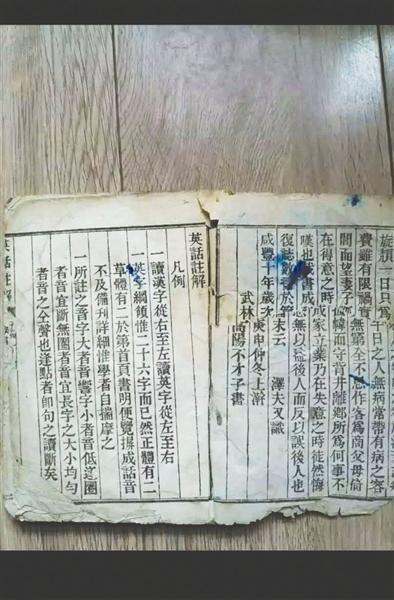 一日只為千日之人無病常帶有病之容
費雖有限禍實無窮第全不忌作客為商父母倚
閭而望妻子倚幃而守背井離鄉所為何事不
在得意之時成家立業乃在失意之時徒然悔
嘆也茲書成無以益後人而反以誤後人也
復誌數於末云 澤夫又識
咸豐十年歲次庚申仲冬上澣
武林高陽不才子書
英話註解
凡例
一讀漢字從右至左讀英字從左至右
一英字綱領惟二十六字而已然正體有二
草體有二於第首頁書明便覽攥成話音
不及備刊詳細惟學者自揣摩之
一所註之音字大者音響字小者音低逐圈
者音宜斷無圈者音宜長字之大小均勻
者音之全聲也逢點者卽句之讀斷矣
英話註解